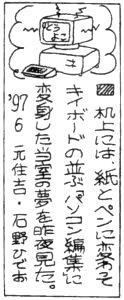 机上には、紙とペンに変わる
キイボードの並ぶパソコン編集に
変身した当室の夢を昨夜見た。
'97 6 元住吉・石野ひでお